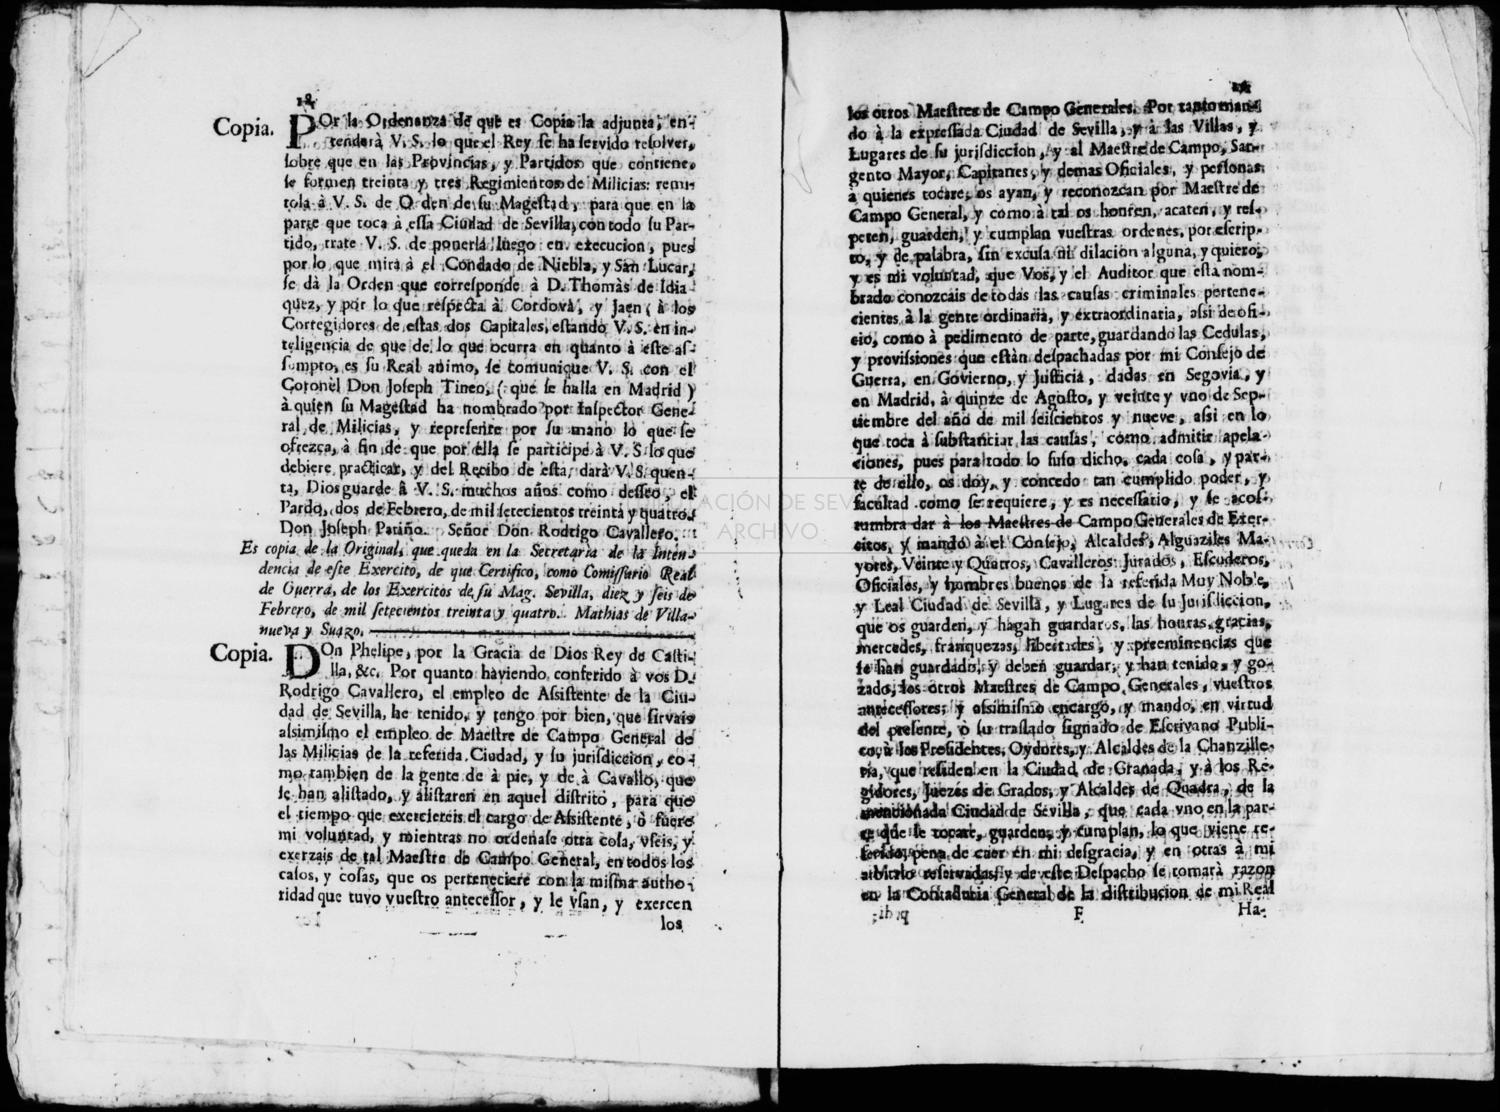 Copia. POr la Ordenanza de que es Copia la adjunta, en-
tenderà V. S. lo que el Rey se ha servido resolver,
sobre que en las Provincias, y Partidos que contiene,
se formen treinta y tres Regimientos de Milicias: remi-
tola à V. S. de Orden de su Magestad, para que en la
parte que toca à essa Ciudad de Sevilla, con todo su Par-
tido, trate V. S. de ponerla luego en execucion, pues
por lo que mira à el Condado de Niebla, y San Lucar,
se dà la Orden que corresponde à D. Thomàs de Idia-
quez, y por lo que respecta à Cordova, y Jaen, à los
Corregidores de estas dos Capitales, estando V. S. en in-
teligencia de que de lo que ocurra en quanto à este as-
sumpto, es su Real animo, se comunique V. S. con el
Coronel Don Joseph Tineo, (que se halla en Madrid)
à quien su Magestad ha nombrado por Inspector Gene-
ral de Milicias, y represente por su mano lo que se
ofrezca, à fin de que por ella se participe à V. S. lo que
debiere practicar, y del Recibo de esta darà V. S. quen-
ta, Dios guarde à V. S. muchos años como desseo, el
Pardo, dos de Febrero, de mil setecientos treinta y quatro.
Don Joseph Patiño. Señor Don Rodrigo Cavallero.
Es copia de la Original, que queda en la Secretaria de la Inten-
dencia de este Exercito, de que Certifico, como Comissario Real
de Guerra, de los Exercitos de su Mag. Sevilla, diez y seis de
Febrero, de mil setecientos treinta y quatro. Mathias de Villa-
nueva y Suazo.
Copia. DOn Phelipe, por la Gracia de Dios Rey de Casti-
lla, &c. Por quanto haviendo conferido à vos D.
Rodrigo Cavallero, el empleo de Assistente de la Ciu-
dad de Sevilla, he tenido, y tengo por bien, que sirvais
assimismo el empleo de Maestre de Campo General de
las Milicias de la referida Ciudad, y su jurisdiccion, co-
mo tambien de la gente de à pie, y de à Cavallo, que
se han alistado, y alistaren en aquel distrito, para que
el tiempo que exerciereis el cargo de Assistente, ò fuere
mi voluntad, y mientras no ordenase otra cosa, vseis, y
exerzais de tal Maestre de Campo General, en todos los
casos, y cosas, que os perteneciere con la misma autho-
ridad que tuvo vuestro antecessor, y le vsan, y exercen
los
los otros Maestres de Campo Generales. Por tanto man-
do à la expressada Ciudad de Sevilla, y à las Villas, y
Lugares de su jurisdiccion, y al Maestre de Campo, Sar-
gento Mayor, Capitanes, y demas Oficiales, y personas
à quienes tocare, os ayan, y reconozcan por Maestre de
Campo General, y como à tal os honren, acaten, y res-
peten, guarden, y cumplan vuestras ordenes, por escrip-
to, y de palabra, sin excusa ni dilacion alguna, y quiero,
y es mi voluntad, que Vos, y el Auditor que està nom-
brado conozcais de todas las causas criminales pertene-
cientes à la gente ordinaria, y extraordinaria, assi de ofi-
cio, como à pedimento de parte, guardando las Cedulas,
y provissiones que estàn despachadas por mi Consejo de
Guerra, en Govierno, y Justicia, dadas en Segovia, y
en Madrid, à quinze de Agosto, y veinte y vno de Sep-
tiembre del año de mil seiscientos y nueve, assi en lo
que toca à substanciar las causas, como admitir apela-
ciones, pues para todo lo suso dicho, cada cosa, y par-
te de ello, os doy, y concedo tan cumplido poder, y
facultad como se requiere, y es necessario, y se acos-
tumbra dar à los Maestres de Campo Generales de Exer-
citos, y mando à el Consejo, Alcaldes, Alguaziles Ma-
yores, Veinte y Quatros, Cavalleros Jurados, Escuderos,
Oficiales, y hombres buenos de la referida Muy Noble,
y Leal Ciudad de Sevilla, y Lugares de su Jurisdiccion,
que os guarden, y hagan guardar os, las honras, gracias,
mercedes, franquezas, libertades, y preeminencias que
se han guardado, y deben guardar, y han tenido, y go-
zado, los otros Maestres de Campo Generales, vuestros
antecessores; y assimismo encargo, y mando, en virtud
del presente, ò su traslado signado de Escrivano Publi-
co, à los Presidentes, Oydores, y Alcaldes de la Chanzille-
ria, que residen en la Ciudad de Granada, y à los Re-
gidores, Juezes de Grados, y Alcaldes de Quadra, de la
mencionada Ciudad de Sevilla, que cada vno en la par-
te que le tocare, guarden, y cumplan, lo que viene re-
ferido, pena de caer en mi desgracia, y en otras à mi
arbitrio reservadas, y de este Despacho se tomarà razon
en la Contaduria General de la distribucion de mi Real
F Ha-
ARCHIVO